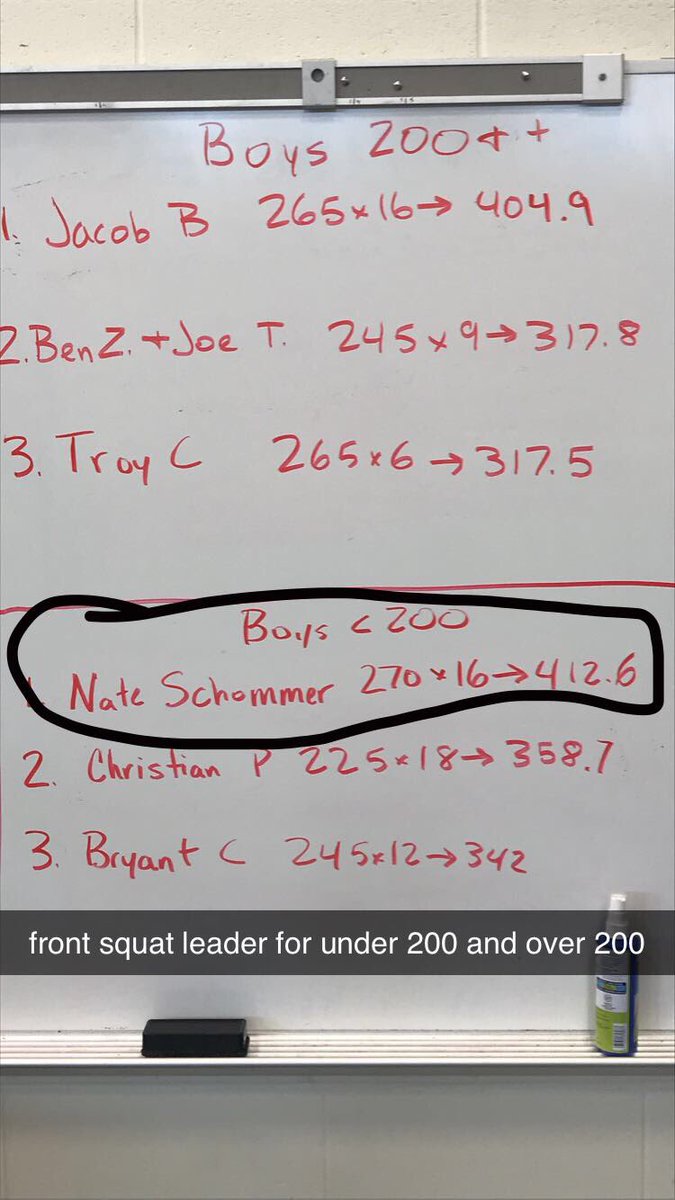 Boys 200++
1. Jacob B 265x16→ 404.9
2. Ben Z. + Joe T. 245 x 9→317.8
3. Troy C 265x6 →317.5
Boys < 200
1. Nate Schommer 270x16→412.6
2. Christian P 225x18→ 358.7
3. Bryant C 245x12→342
front squat leader for under 200 and over 200